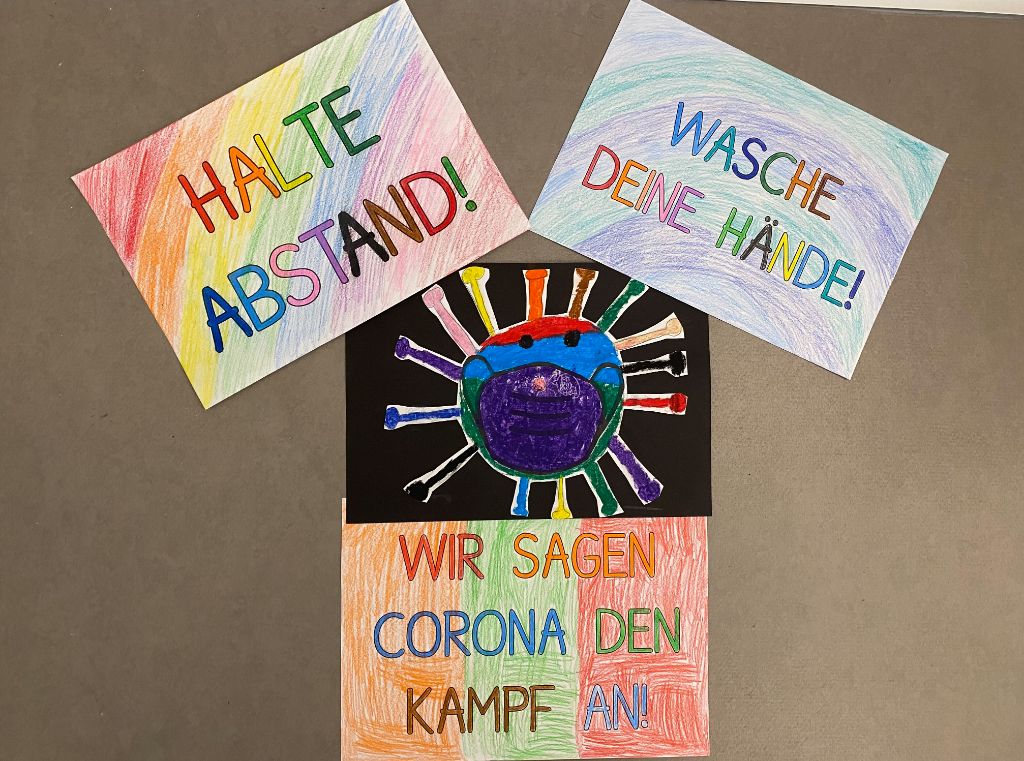 HALTE
ABSTAND!
WASCHE
DEINE HÄNDE!
WIR SAGEN
CORONA DEN
KAMPF AN!